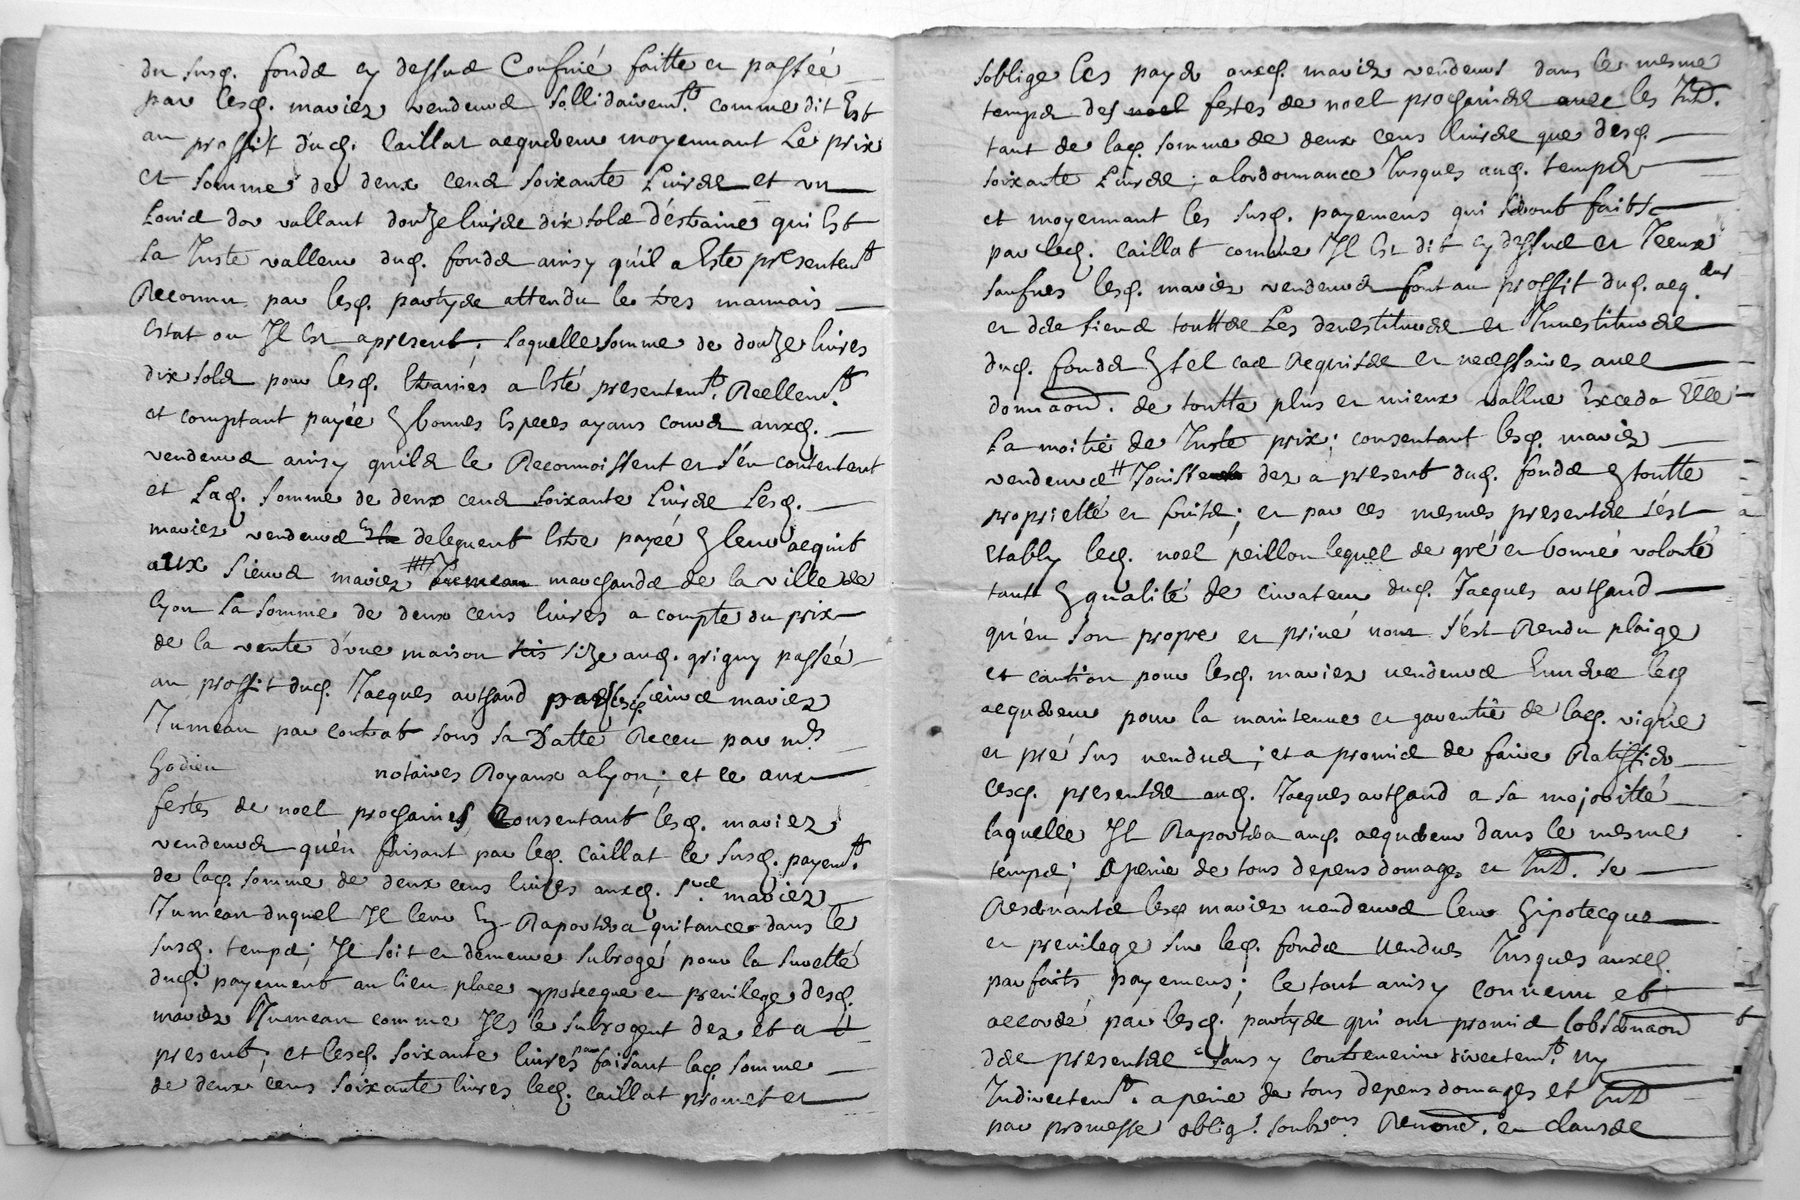 du susd. fondz cy dessuz Confiné faitte et passéé
par lesd. mariez vendeurz sollidairemt. comme dit Est
au proffit dud. Caillat acquereur moyennant Le prix
et somme de deux centz soixante Livrez et un
Louiz dor vallant douze livrez dix solz d'estraine qui Est
la Juste valleur dud. fondz ainsy qu'il a Esté presentemt
Reconnu par lesd. partyez attendu le tres mauuais
Estat ou Jl Est apresent. laquelle somme de douze livres
dix solz pour lesd. Etraines a Esté presentemt. Reellemt.
et comptant payée En bonnes Especes ayans courz auxd.
vendeurz ainsy quilz le Reconnoissent et s'en contentent
et Lad. somme de deux centz soixante Livrez Lesd.
mariez vendeurz deleguent Estre payéé En leur acquit
aux sieurz mariez marchandz de la ville de
lyon La somme de deux cens livres a compte du prix
de la vente d'une maison size aud. grigny passéé
au proffit dud. Jacques arthaud par lesd. sieurz mariez
Jumeau par contrat sous sa Datte Receu par me
Godieu notaires Royaux alyon; et ce aux
festes de noel prochaines Consentant lesd. mariez
vendeurz qu'en faisant par led. Caillat le susd. payemt.
de lad. somme de deux cens livres auxd. srz. mariez
Jumeau duquel Jl leur En Raportera quitance dans le
susd. tempz; Jl soit et demeure subrogé pour la suretté
dud. payement au lieu place ypotecque et preuilege desd.
mariez Jumeau comme Jls le subrogent dez et a
present; et lesd. soixante livres faisant lad somme
de deux cens soixante livres led. Caillat promet et
soblige les payer auxd. mariez vendeurs dans le mesme
tempz des noel festes de noel prochainez auec les JnD.
tant de lad. somme de deux cens livrez que desd.
soixante Livrez; a lordonnance Jusques aud. tempz
et moyennant les susd. payemens qui seront faits
par led. Caillat comme Jl Est dit cy dessuz et Jceux
saufues lesd. mariez vendeurz font au proffit dud. acq.
eur
et dez sienz touttez Les deuestiturez et Jnuestiturez
dud. fondz En tel caz Requisez et necessaires auec
donnaon. de toutte plus et mieux vallue Exceda Elle
La moitié de Juste prix; consentant lesd. mariez
vendeurz dez a present dud. fondz En toutte
proprietté et fruitz; et par ces mesmes presentez s'est
Etably led. noel peillon lequel de gré et bonne volonté
tant En qualité de curateur dud. Jacques arthaud
qu'en son propre et priué nom s'est Rendu plaige
et caution pour lesd. mariez vendeurz Enuerz led
acquereur pour la maintenue et garentie de lad. vigne
et pré sus venduz; et a promiz de faire Ratiffier
Cesd. presentez aud. Jacques arthaud a sa majoritté
laquelle Jl Raportera aud. acquereur dans le mesme
tempz; apeine de tous depens domages et JnD. se
Reseruantz lesd mariez vendeurz leur hipotecque
et preuilege sur led. fondz vendues Jusques auxd.
parfaits payemens; le tout ainsy conuenu et
accordé par lesd. partyez qui ont promiz lobseruaon
dez presentez sans y contreuenir directemt. ny
Jndirectemt. apeine de tous depens domages et JnD
par promesse oblig. soubzons. Renond. et clausez